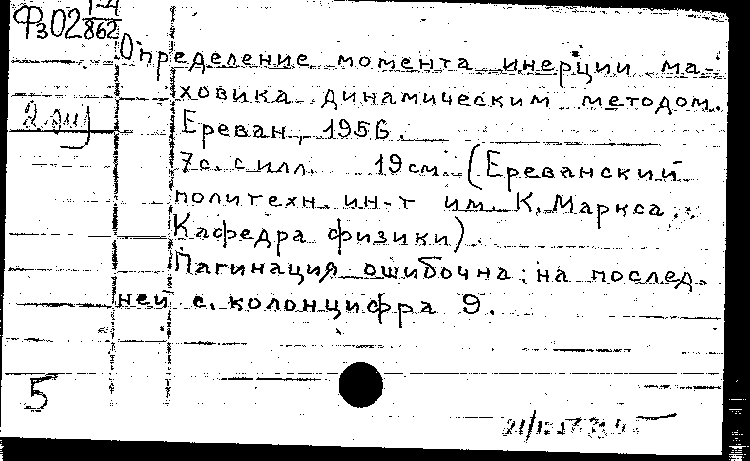 Ф302 1-4/862
Определение момента инерции ма-
ховика динамическим методом.
2 экз
Ереван, 1956.
7с. с илл. 19см. (Ереванский
политехн. ин-т им. К. Маркса.
Кафедра физики).
Пагинация ошибочна: на послед-
ней с. колонцифра 9.
5